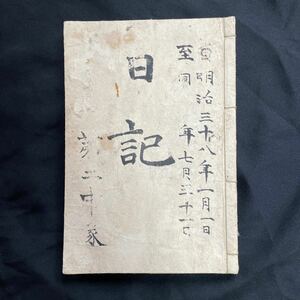 自明治三十八年一月一日
至同　年七月三十一日
日記